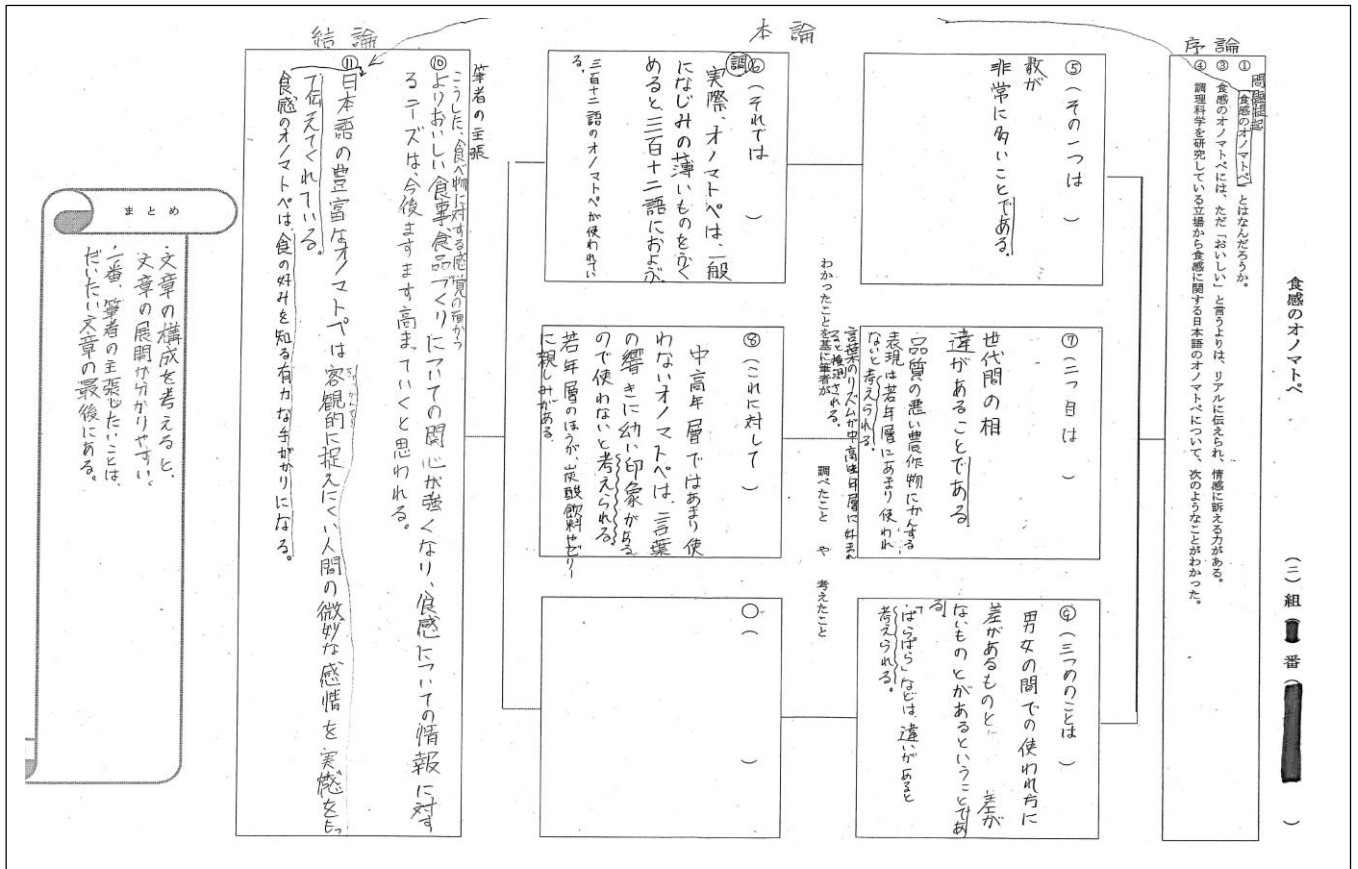 食感のオノマトペ
(二)組( 番( )
序論
問題提起
① 「食感のオノマトペ」とはなんだろうか。
③ 食感のオノマトペには、ただ「おいしい」と言うよりは、リアルに伝えられ、情感に訴える力がある。
④ 調理科学を研究している立場から食感に関する日本語のオノマトペについて、次のようなことがわかった。
本論
⑤(その一つは )
数が
非常に多いことである。
⑦(二つ目は )
世代間の相
違があることである
品質の悪い農作物にかんする
表現は若年層にあまり使われ
ないと考えられる。
言葉のリズムが中高年層に好まれ
ると推測される。
⑨(三つめのことは )
男女の間での使われ方に
差があるものと 差が
ないものとがあるということであ
る。
「ぱらぱら」などは、違いがあると
考えられる。
わかったことを基に筆者が 調べたこと や 考えたこと
調
⑥(それでは )
実際、オノマトペは、一般
になじみの薄いものをふく
めると三百十二語におよぶ
三百十二語のオノマトペが使われてい
る。
⑧(これに対して )
中高年層ではあまり使
わないオノマトペは、言葉
の響きに幼い印象がある
ので使わないと考えられる。
若年層のほうが、炭酸飲料やゼリー
に親しみがある。
○( )
結論
筆者の主張
⑩ こうした、食べ物に対する感覚の面かつ
よりおいしい食事、食品づくりについての関心が強くなり、食感についての情報に対す
るニーズは、今後ますます高まっていくと思われる。
⑪ 日本語の豊富なオノマトペは客観的に捉えにくい人間の微妙な感情を実感をもっ
て伝えてくれている。
食感のオノマトペは、食の好みを知る有力な手がかりになる。
まとめ
・文章の構成を考えると、
文章の展開が分かりやすい。
・一番、筆者の主張したいことは、
だいたい文章の最後にある。